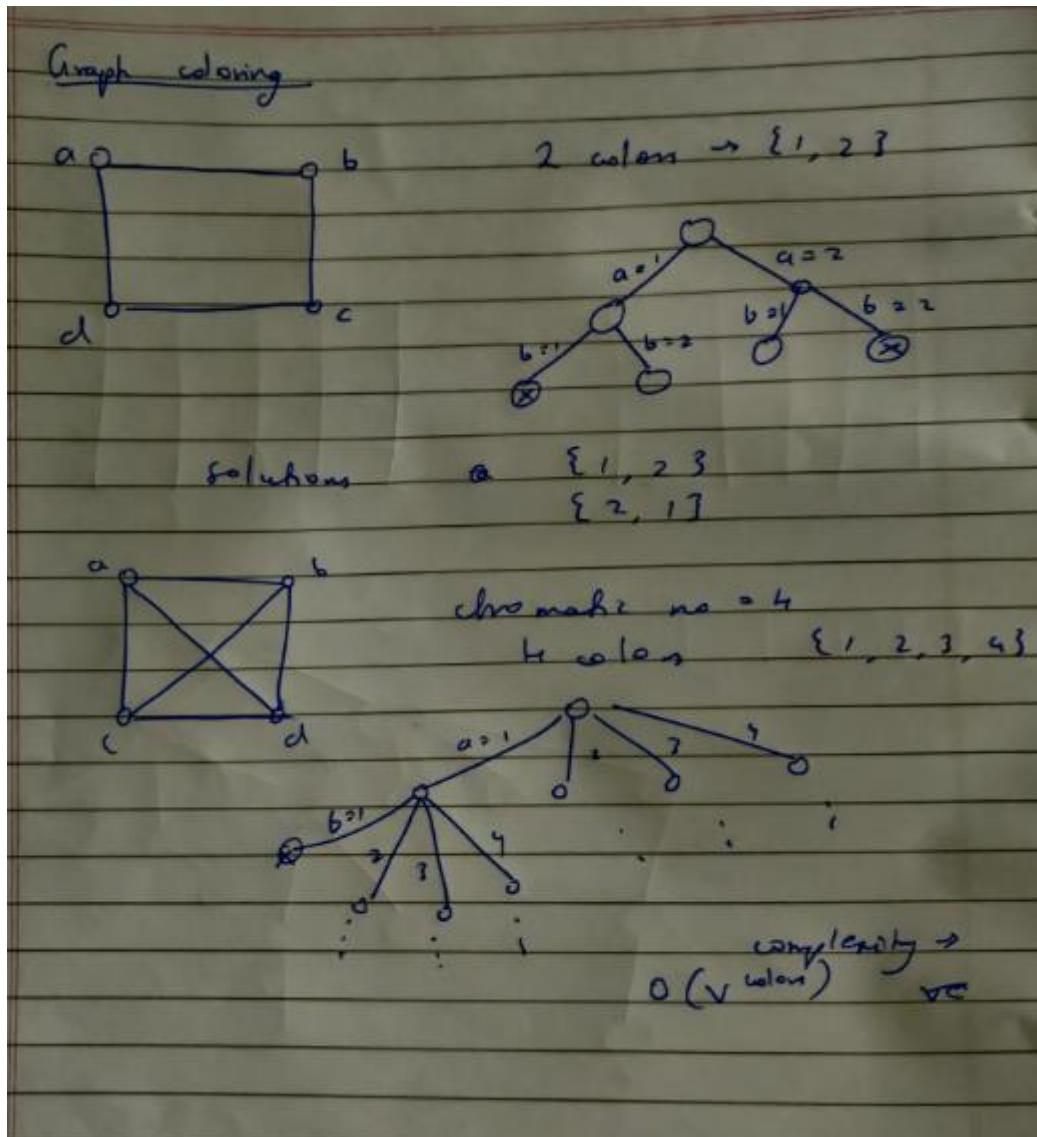 Graph coloring
a b 2 colors → {1, 2}
a=1 a=2
d c
b=1 b=2 b=1 b=2
solutions {1, 2}
{2, 1}
a b
chromatic no = 4
4 colors {1, 2, 3, 4}
c d
a=1 2 3 4
b=1 2 3 4
complexity →
O(V^colors)